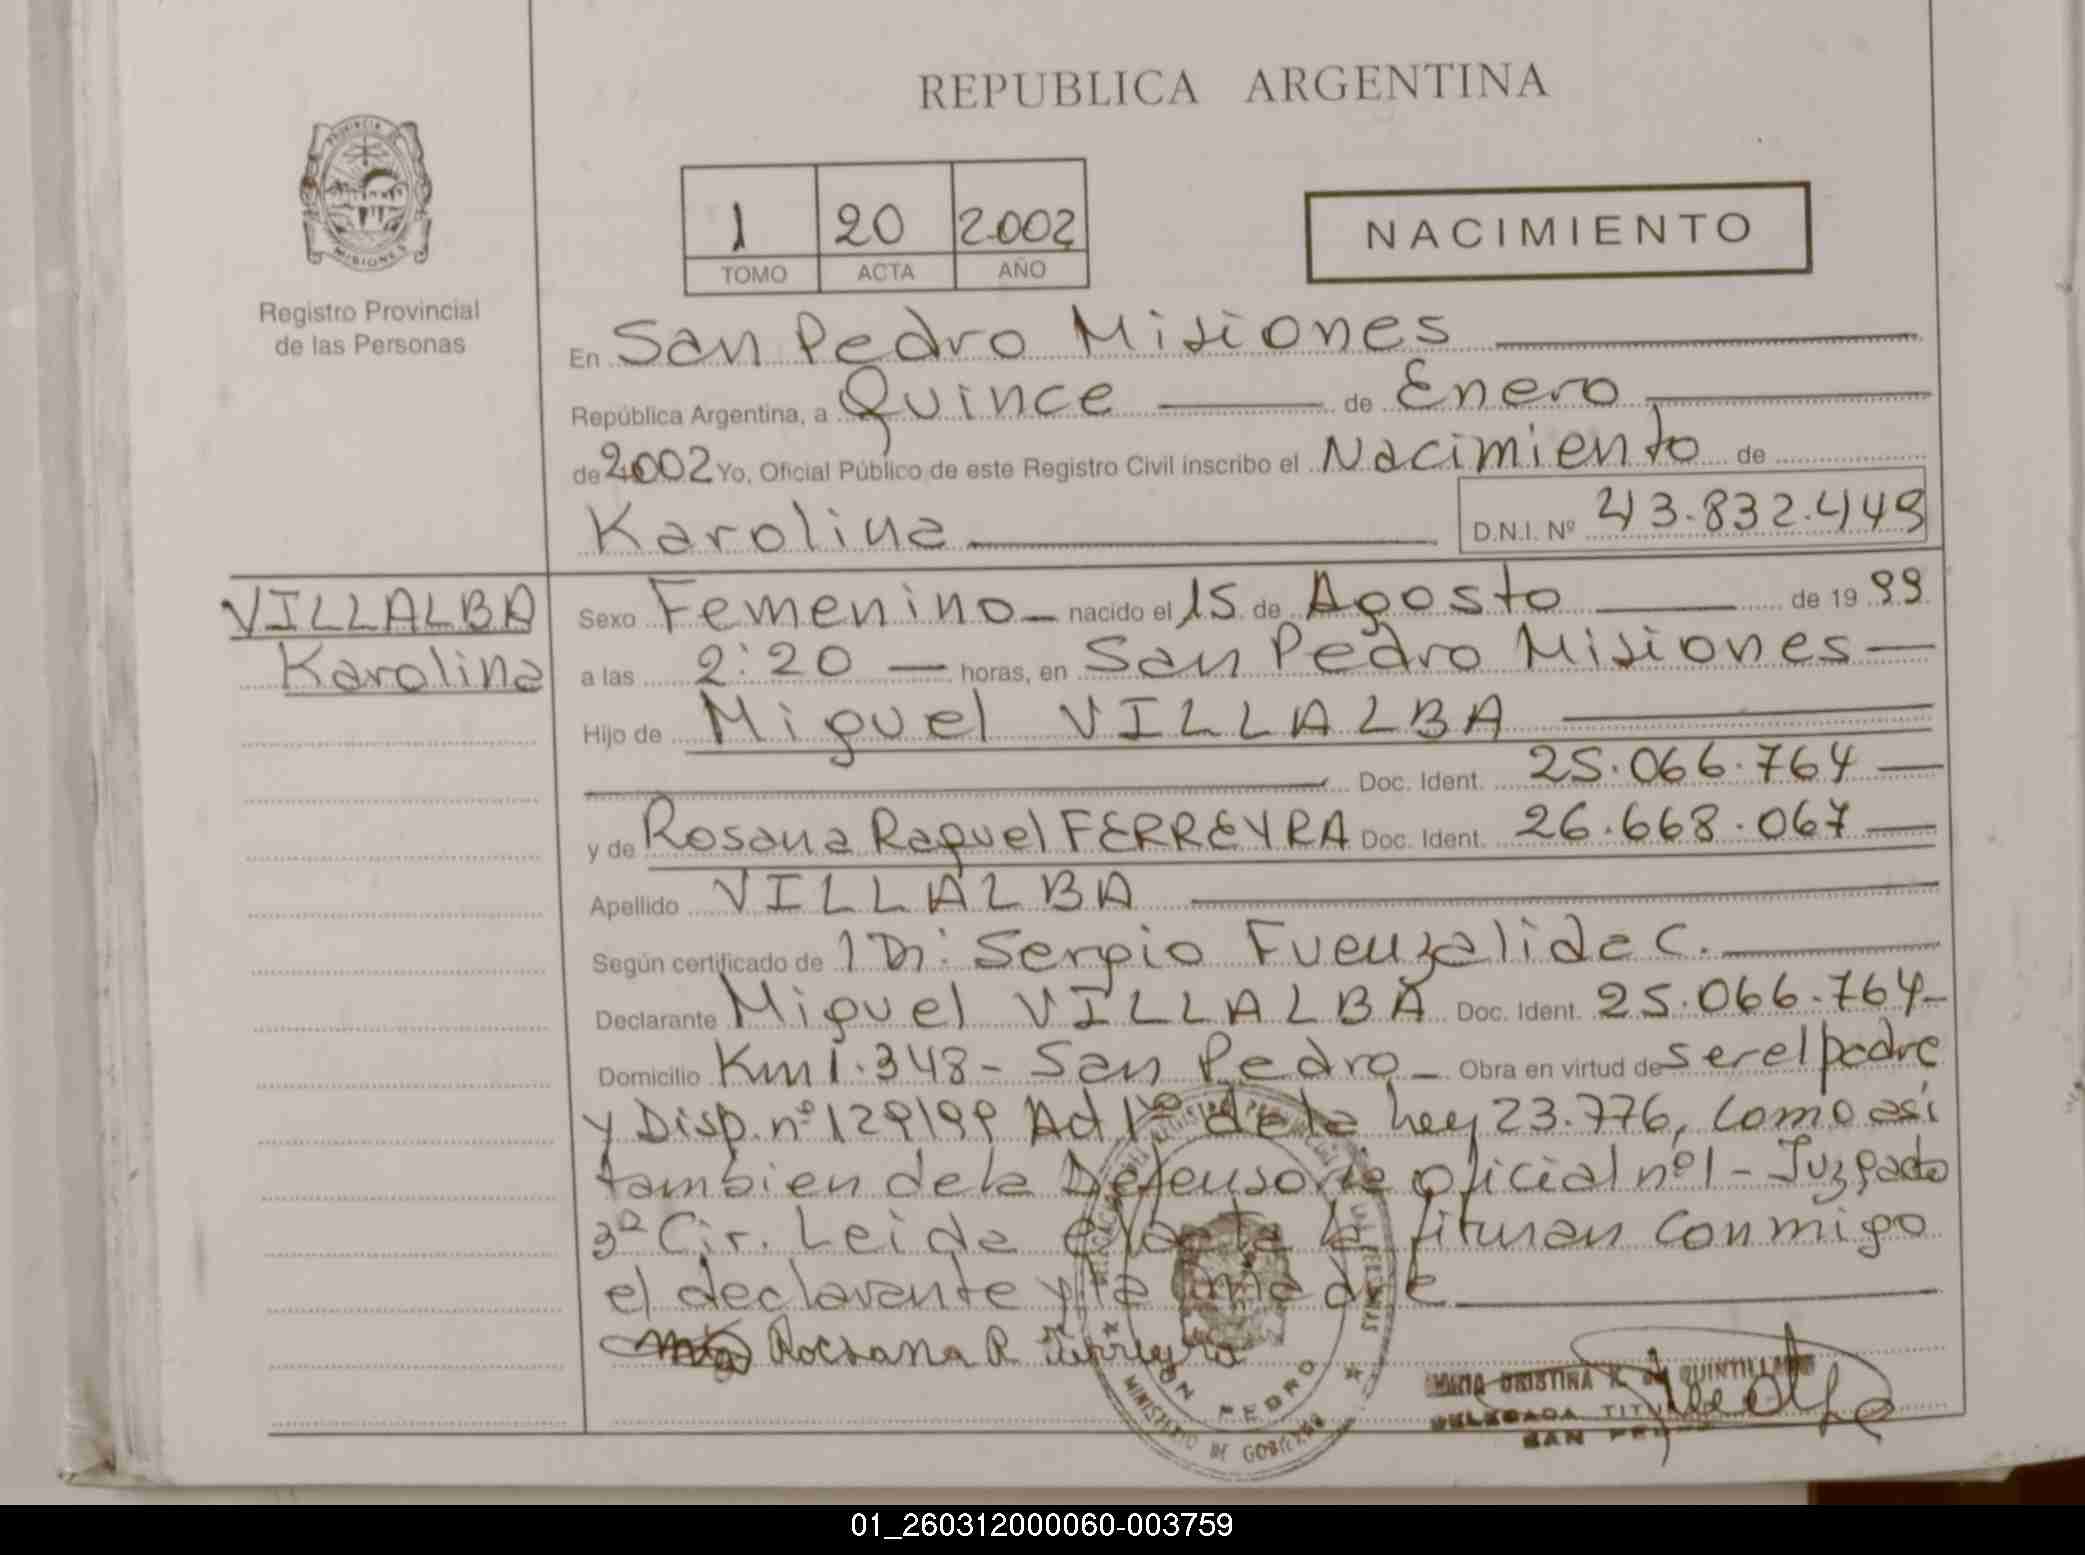 REPUBLICA ARGENTINA
PROVINCIA DE
MISIONES
Registro Provincial
de las Personas
1 20 2002
TOMO ACTA AÑO
NACIMIENTO
En San Pedro Misiones
República Argentina, a Quince de Enero
de 2002 Yo, Oficial Público de este Registro Civil inscribo el Nacimiento de
Karolina D.N.I. Nº 43.832.449
VILLALBA
Karolina
Sexo Femenino nacido el 15 de Agosto de 19 99
a las 2:20 horas, en San Pedro Misiones
Hijo de Miguel VILLALBA
Doc. Ident. 25.066.764
y de Rosana Raquel FERREYRA Doc. Ident. 26.668.067
Apellido VILLALBA
Según certificado de Sergio Fuenzalida C.
Declarante Miguel VILLALBA Doc. Ident. 25.066.764
Domicilio Km 1.348 - San Pedro Obra en virtud de ser el padre
y Disp. nº 129/99 Ad 1º de la Ley 23.776, como asi
tambien de la Defensoria oficial nº 1 - Juzgado
3ª Cir. Leida el acta la firman conmigo
el declarante y la madre
Rocsana R Ferreyra
MINISTERIO DE GOBIERNO
PEDRO
MARIA CRISTINA K. de QUINTILLAN
DELEGADA TITULAR
SAN PEDRO
01_260312000060-003759